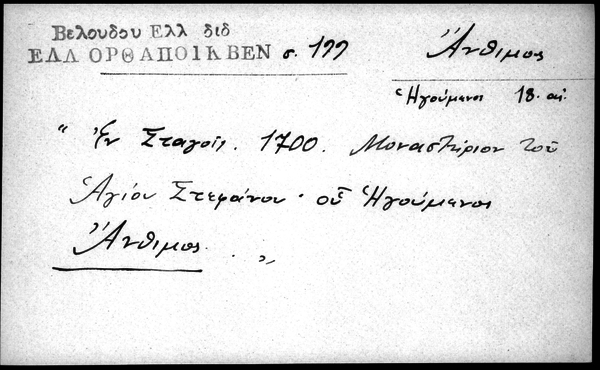 Βελουδου Ελλ διδ
ΕΛΛ ΟΡΘ ΑΠΟΙΚ ΒΕΝ σ. 199
Ἄνθιμος
Ἡγούμενος 18. αἰ.
" Ἐν Σταγοῖς. 1700. Μοναστήριον τοῦ
Ἁγίου Στεφάνου · οὗ Ἡγούμενος
Ἄνθιμος . "